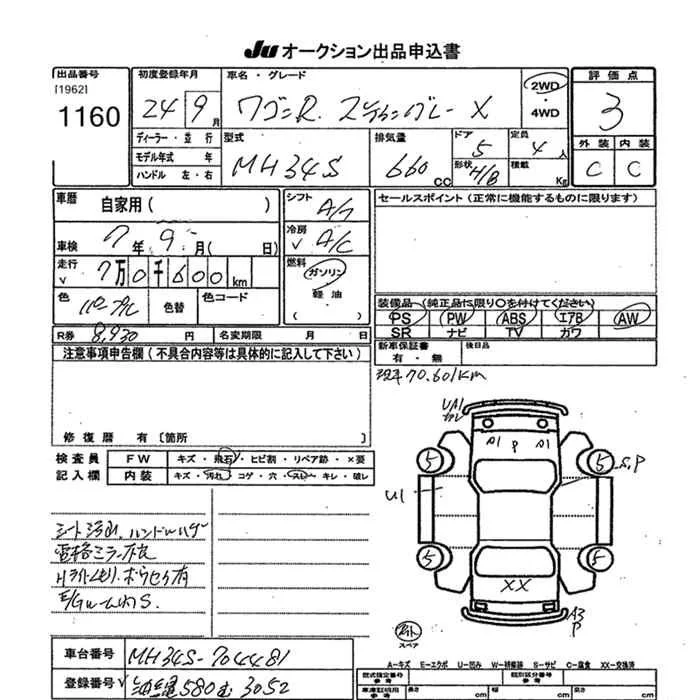 JU オークション出品申込書
出品番号
[1962]
1160
初度登録年月
24 9月
車名・グレード
ワゴンR. スティングレー X
2WD
・
4WD
評価点
3
外装 内装
C C
ディーラー・並行
モデル年式 年
ハンドル 左・右
型式
MH34S
排気量
660 CC
ドア
5
形状
H/B
定員
4人
積載
Kg
車歴 自家用( )
車検 7年9月( 日)
走行 v 7万0千600km
色 パープル 色替 色コード
シフト
A/T
冷房
v A/C
燃料
ガソリン
・
軽油
( )
セールスポイント(正常に機能するものに限ります)
装備品(純正品に限り○を付けてください)
PS PW ABS エアB AW
SR ナビ TV カワ
R券 8,930 円 名変期限 月 日
新車保証書
有・無
後日品
注意事項申告欄(不具合内容等は具体的に記入して下さい)
修復歴 有〔箇所
現車70.601KM
検査員
記入欄
FW キズ・飛石・ヒビ割・リペア跡・×要
内装 キズ・汚れ・コゲ・穴・スレ・キレ・破レ
UA1
A1 P A1
5 5
S,P
U1
5 5
XX
A3
P
スペア
シート汚れ.ハンドルハゲ
電格ミラー不良
Hライトくもり.ボウセイ有
E/Gルーム内S.
A-キズ E-エクボ U-凹み W-補修跡 S-サビ C-腐食 XX-交換済
車台番号 MH34S-704481
登録番号 v 沖縄580む3052
型式指定番号
参考
類別区分番号
参考
車庫証明用
参考
長さ cm
幅 cm
高さ cm